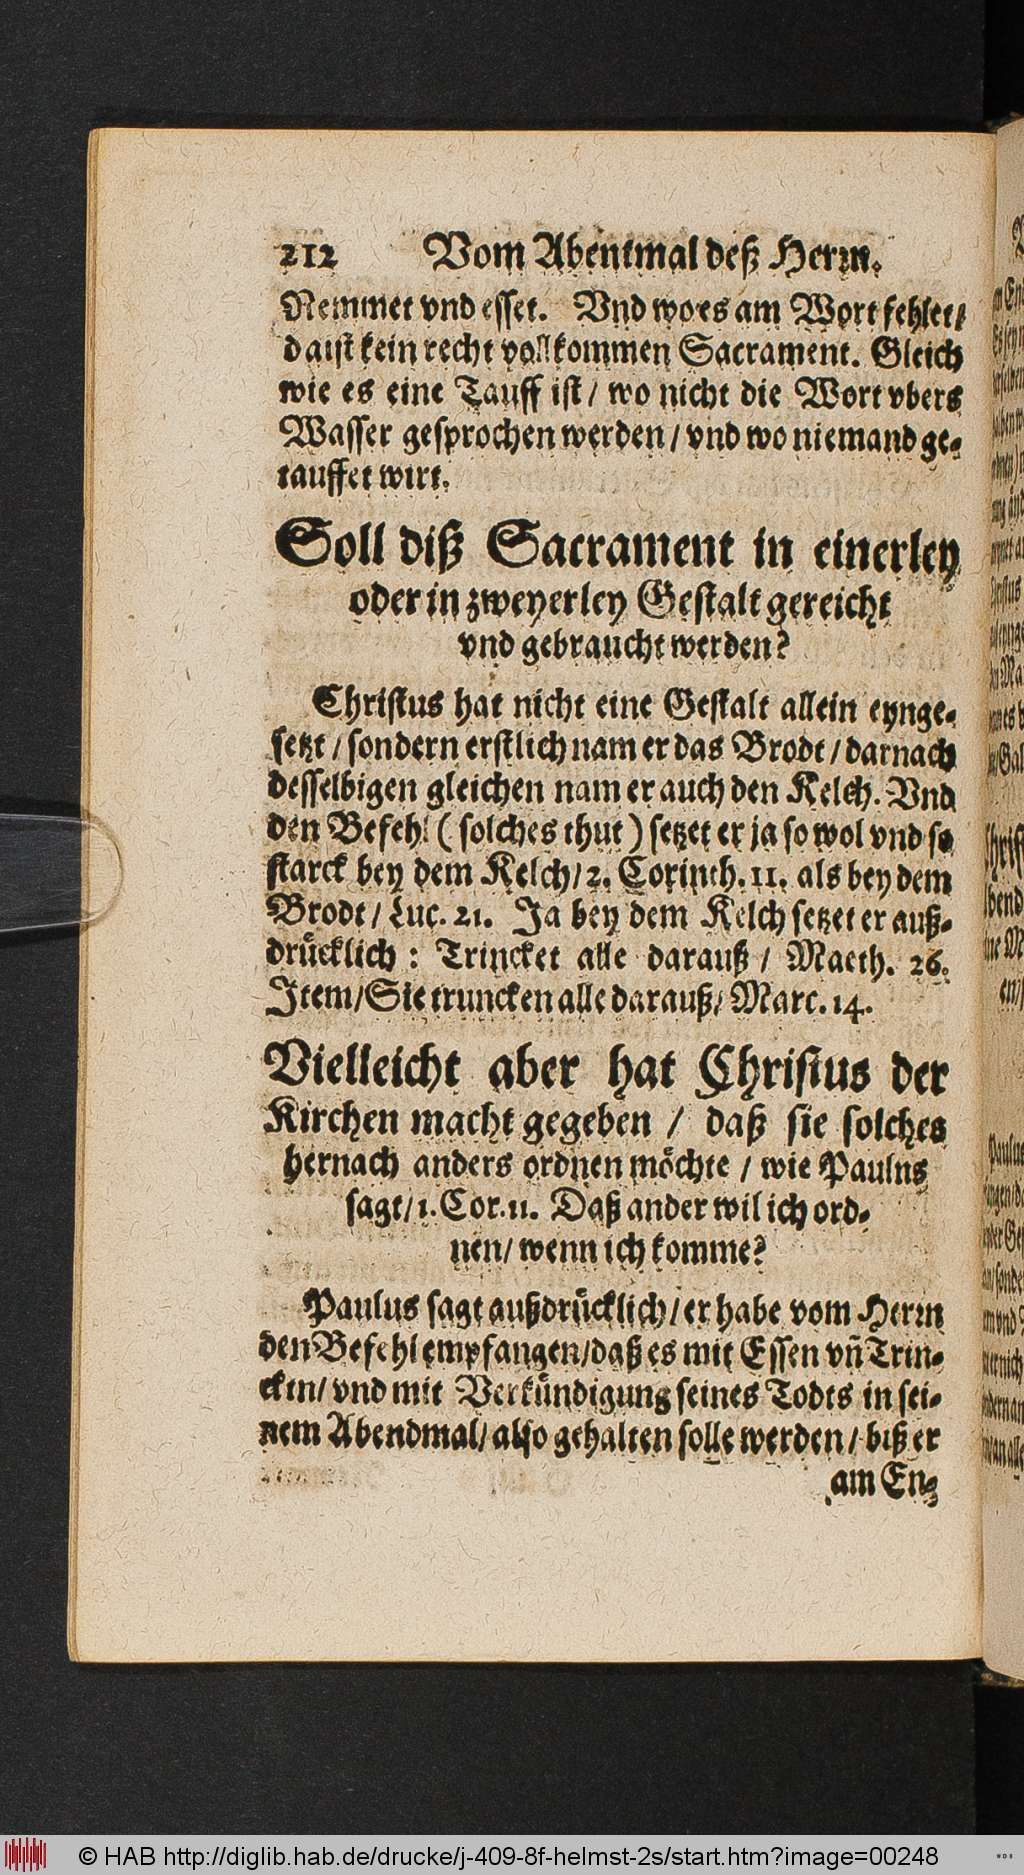 212 Vom Abentmal deß Herrn.
Nemmet vnd esset. Vnd wo es am Wort fehlet/
da ist kein recht vollkommen Sacrament. Gleich
wie es eine Tauff ist / wo nicht die Wort vbers
Wasser gesprochen werden / vnd wo niemand ge-
tauffet wirt.
Soll diß Sacrament in einerley
oder in zweyerley Gestalt gereicht
vnd gebraucht werden?
Christus hat nicht eine Gestalt allein eynge-
setzt / sondern erstlich nam er das Brodt / darnach
desselbigen gleichen nam er auch den Kelch. Vnd
den Befehl ( solches thut ) setzet er ja so wol vnd so
starck bey dem Kelch / 2. Corinth. 11. als bey dem
Brodt / Luc. 21. Ja bey dem Kelch setzet er auß-
drücklich : Trincket alle darauß / Matth. 26.
Item / Sie truncken alle darauß / Marc. 14.
Vielleicht aber hat Christus der
Kirchen macht gegeben / daß sie solches
hernach anders ordnen möchte / wie Paulus
sagt / 1. Cor. 11. Daß ander wil ich ord-
nen / wenn ich komme?
Paulus sagt außdrücklich / er habe vom Herrn
den Befehl empfangen / daß es mit Essen vn̄ Trin-
cken / vnd mit Verkündigung seines Todts in sei-
nem Abendmal / also gehalten solle werden / biß er
am En-
© HAB http://diglib.hab.de/drucke/j-409-8f-helmst-2s/start.htm?image=00248